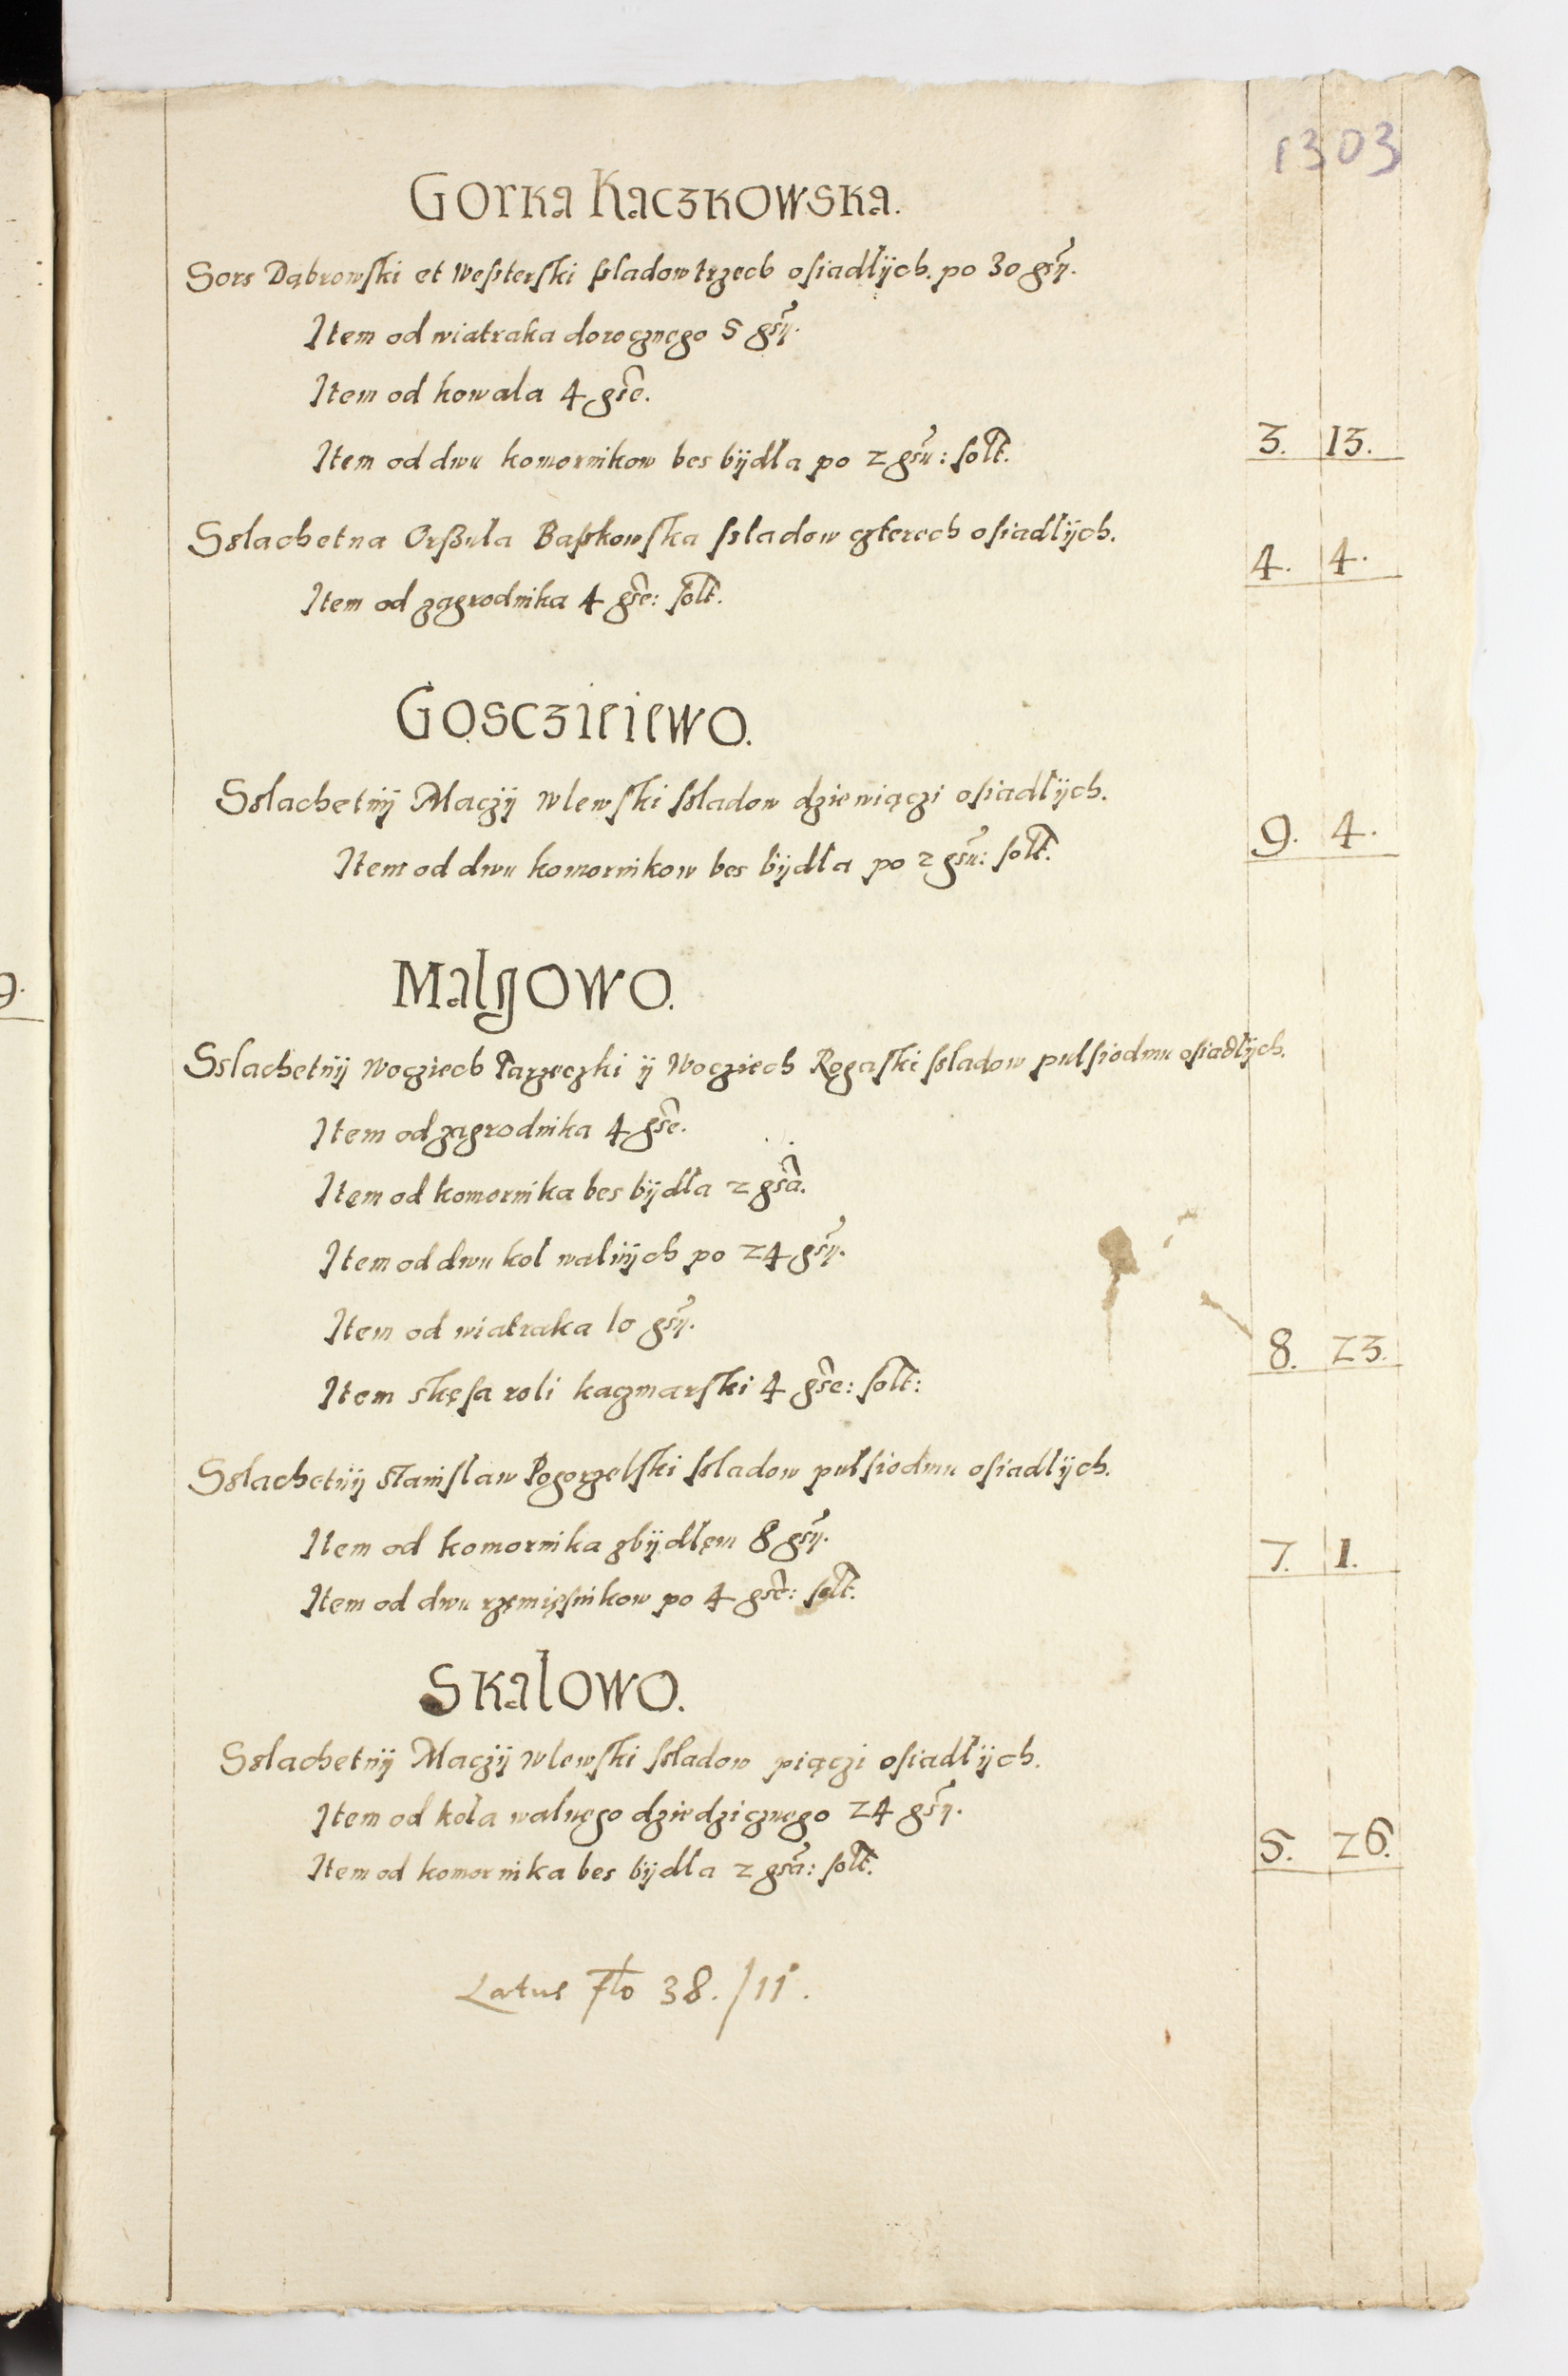 1303
Gorka Kaczkowska.
Sors Dąbrowski et Westerski ssladow trzech osiadlÿch. po 30 gsÿ.
Item od wiatraka dorocznego 5 gsÿ.
Item od kowala 4 gse.
Item od dwu komornikow bes bÿdła po 2 gsu: solt. 3. 13.
Sslachetna Orßula Baßkowska ssladow czterech osiadlÿch.
Item od zagrodnika 4 gse: solt. 4. 4.
Gosczieiewo.
Sslachetnÿ Maczÿ Wlewski ssladow dziewiączi osiadlÿch.
Item od dwu komornikow bes bÿdła po 2 gsu: solt. 9. 4.
Malgowo.
Sslachetnÿ Wocziech Parzeczki ÿ Wocziech Rogaski ssladow pulsiodmu osiadlÿch.
Item od zagrodnika 4 gse.
Item od komornika bes bÿdła 2 gsa.
Item od dwu kol walnÿch po 24 gsÿ.
Item od wiatraka 10 gsÿ.
Item skęsa roli kaczmarski 4 gse: solt: 8. 23.
Sslachetnÿ Stanislaw Pogorzelski ssladow pulsiodmu osiadlÿch.
Item od komornika zbÿdłem 8 gsÿ.
Item od dwu rzemięsnikow po 4 gse: solt. 7. 1.
Skalowo.
Sslachetnÿ Maczÿ Wlewski ssladow piączi osiadlÿch.
Item od koła walnego dziedzicznego 24 gsÿ.
Item od komornika bes bÿdła 2 gsa: solt. 5. 26.
Latus flo 38./11.
9.